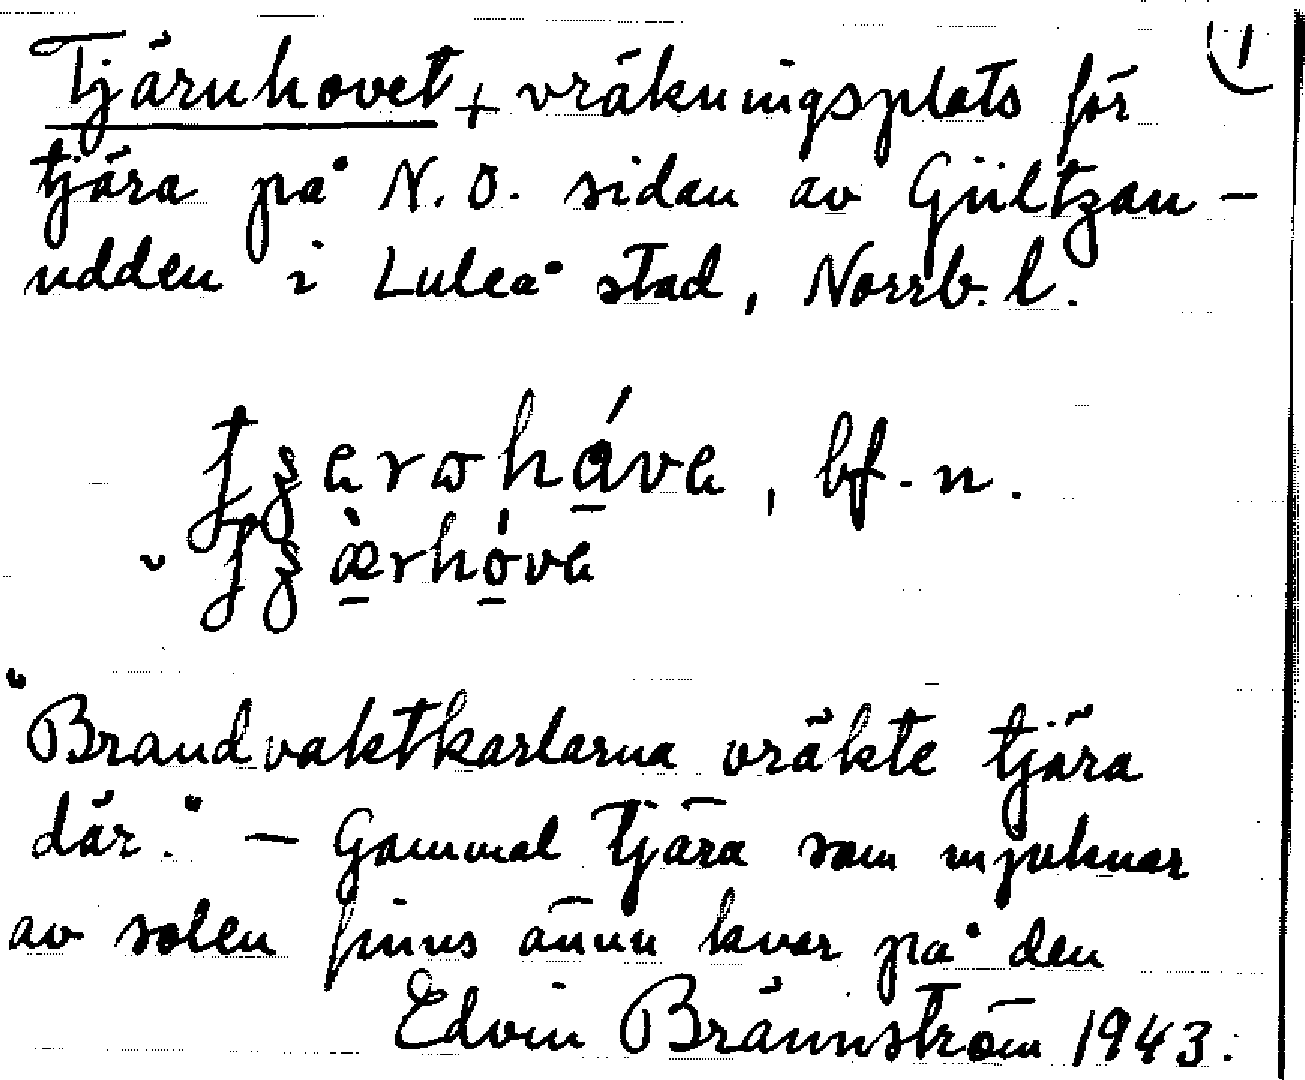 1
Tjäruhovet + vräkningsplats för
tjära på N.O. sidan av Gültzau-
udden i Luleå stad, Norrb. l.
bf. n.
"Brandvaktkarlarna vräkte tjära
där." — Gammal tjära som mjuknar
av solen finns ännu kvar på den
Edvin Brännström 1943.